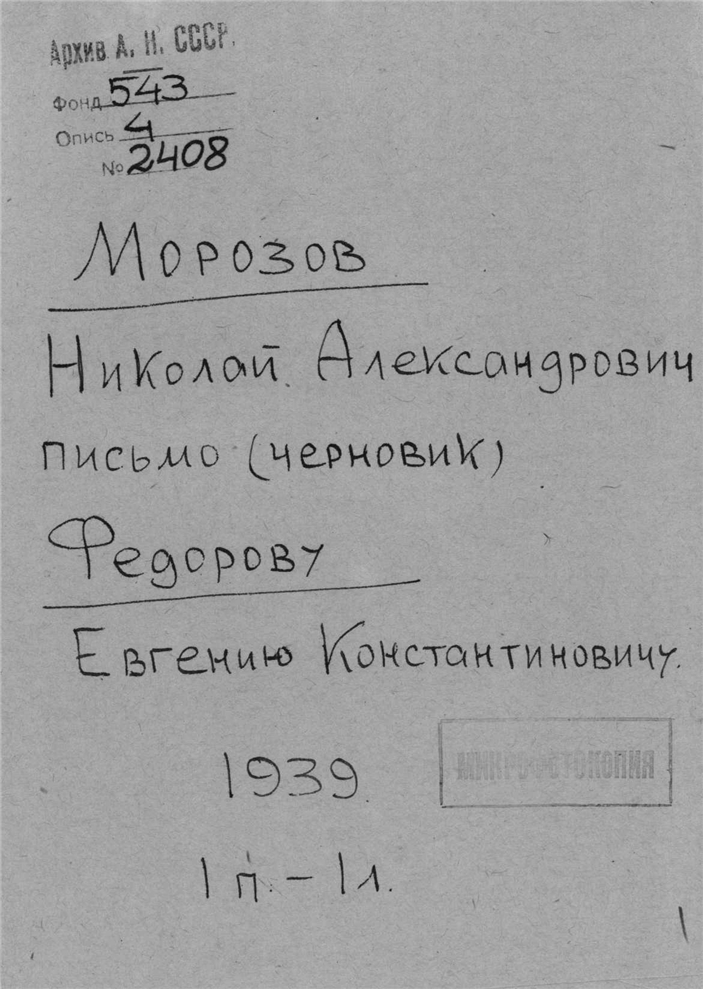 Архив А. Н. СССР.
Фонд 543
Опись 4
№ 2408
Морозов
Николай Александрович
письмо (черновик)
Федорову
Евгению Константиновичу.
1939
МИКРОФОТОКОПИЯ
1 п. – 1 л.